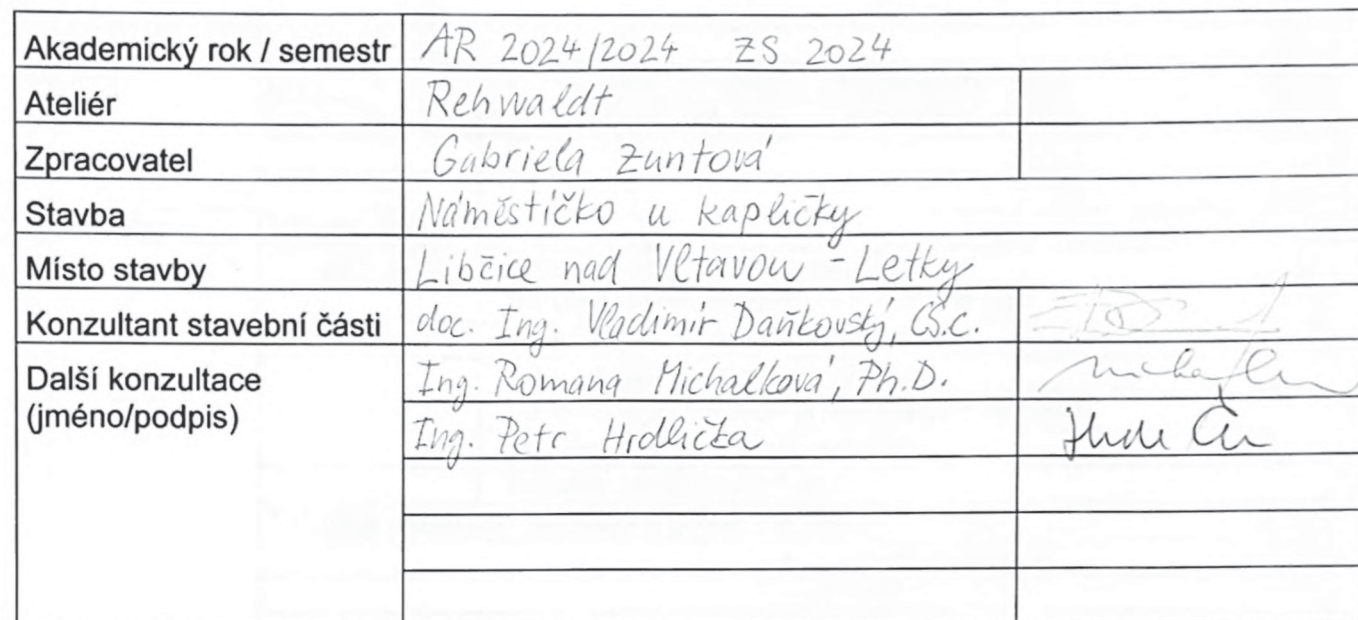 Akademický rok / semestr AR 2024/2024 ZS 2024
Ateliér Rehwaldt
Zpracovatel Gabriela Zuntová
Stavba Náměstíčko u kapličky
Místo stavby Libčice nad Vltavou - Letky
Konzultant stavební části doc. Ing. Vladimír Daňkovský, CS.C.
Další konzultace Ing. Romana Michalková, Ph.D.
(jméno/podpis) Ing. Petr Hrdlička